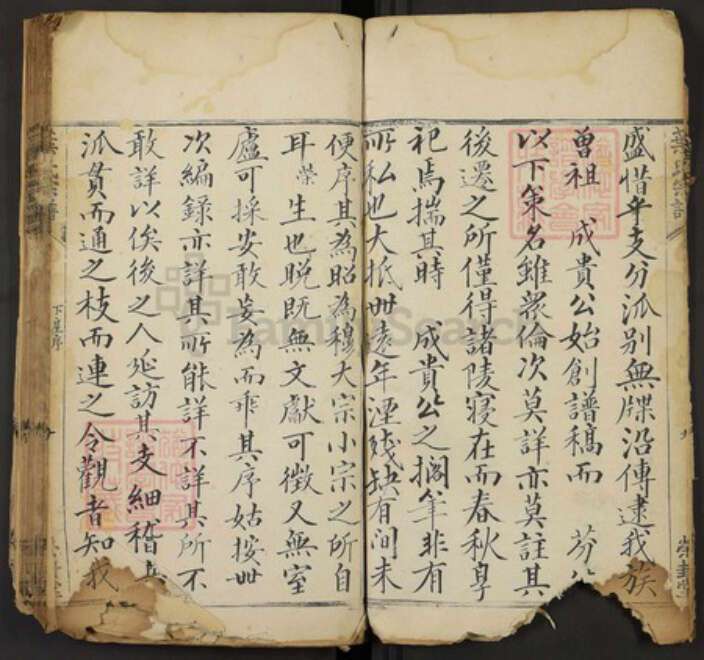 盛惜乎支分派别無牒沿傳逮我族
曾祖 成貴公始創譜稿而 芬
以下策名雖衆倫次莫詳亦莫註其
後遷之所僅得諸陵寢在而春秋享
祀焉揣其時 成貴公之擱筆非有
所私也大抵世遠年湮殘缺有间未
便序其為昭為穆大宗小宗之所自
耳榮生也晚既無文獻可徵又無室
廬可採安敢妄為而乖其序姑按世
次編録亦詳其所能詳不詳其所不
敢詳以俟後之人延訪其支細稽其
派貫而通之枝而連之令觀者知我
下屋序
FamilySearch